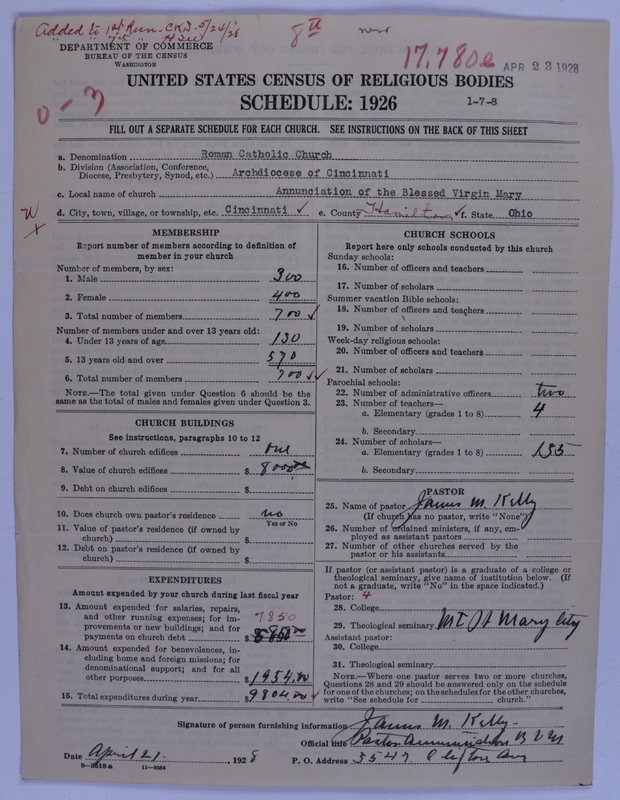 Added to 1st Run-CKD-5/24/28
8th
17,780e
APR 23 1928
DEPARTMENT OF COMMERCE
BUREAU OF THE CENSUS
WASHINGTON
UNITED STATES CENSUS OF RELIGIOUS BODIES
SCHEDULE: 1926
1-7-8
0-3
FILL OUT A SEPARATE SCHEDULE FOR EACH CHURCH. SEE INSTRUCTIONS ON THE BACK OF THIS SHEET
a. Denomination Roman Catholic Church
b. Division (Association, Conference, Diocese, Presbytery, Synod, etc.) Archdiocese of Cincinnati
c. Local name of church Annunciation of the Blessed Virgin Mary
d. City, town, village, or township, etc. Cincinnati ✓ e. County Hamilton ✓ f. State Ohio
MEMBERSHIP
Report number of members according to definition of
member in your church
Number of members, by sex:
1. Male 300
2. Female 400
3. Total number of members 700 ✓
Number of members under and over 13 years old:
4. Under 13 years of age 130
5. 13 years old and over 570
6. Total number of members 700 ✓✓
NOTE.—The total given under Question 6 should be
same as the total of males and females given under Question 3.
CHURCH BUILDINGS
See instructions, paragraphs 10 to 12
7. Number of church edifices one
8. Value of church edifices $ 8000
9. Debt on church edifices $
10. Does church own pastor's residence no
Yes or No
11. Value of pastor's residence (if owned by
church) $
12. Debt on pastor's residence (if owned by
church) $
EXPENDITURES
Amount expended by your church during last fiscal year
13. Amount expended for salaries, repairs,
and other running expenses; for im-
provements or new buildings; and for 7850
payments on church debt $ 5850
14. Amount for benevolences, in-
cluding home and foreign missions; for
denominational support; and for all
other purposes $ 1954.00
15. Total expenditures during year $ 9804.00 ✓
CHURCH SCHOOLS
Report here only schools conducted by this church
Sunday schools:
16. Number of officers and teachers
17. Number of scholars
Summer vacation Bible schools:
18. Number of officers and teachers
19. Number of scholars
Week-day religious schools:
20. Number of officers and teachers
21. Number of scholars
Parochial schools:
22. Number of administrative officers two
23. Number of teachers—
a. Elementary (grades 1 to 8) 4
b. Secondary
24. Number of scholars—
a. Elementary (grades 1 to 8) 135
b. Secondary
PASTOR
25. Name of pastor James M. Kelly
(If church has no pastor, write "None")
26. Number of ordained ministers, if any, em-
ployed as assistant pastors
27. Number of other churches served by the
pastor or his assistants
If pastor (or assistant pastor) is a graduate of a college or
theological seminary, give name of institution below. (If
not a graduate, write "No" in the space indicated.)
Pastor: 4
28. College
29. Theological seminary Mt St Mary City
Assistant pastor:
30. College
31. Theological seminary
NOTE.—Where one pastor serves two or more churches,
Questions 28 and 29 should be answered only on the schedule
for one of the churches; on the schedules for the other churches,
write "See schedule for church."
Signature of person furnishing information James M. Kelly
Official title Pastor Annunciation B V M
Date April 21, 1928 P. O. Address 3547 Clifton Ave
8-3518a 11-9064